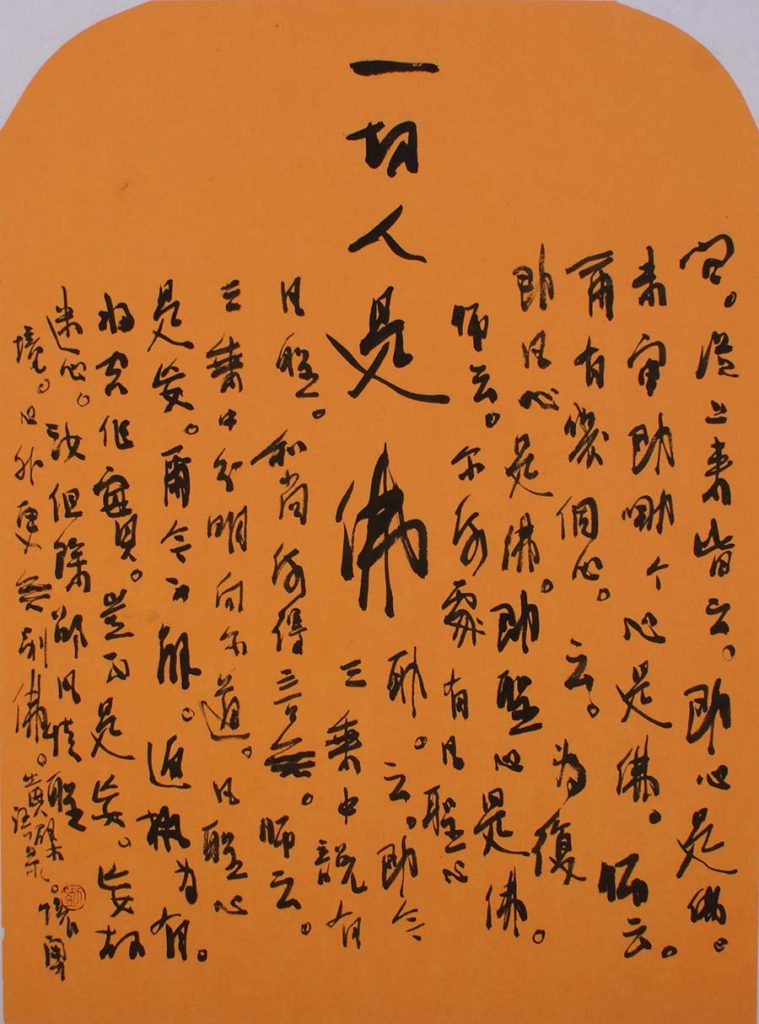 一切人是佛
問。從上來皆云。即心是佛。
未審即哪个心是佛。師云。
爾有幾個心。云。為復
即凡心是佛。即聖心是佛。
師云。尔何處有凡聖心
耶。云。即今
三乘中說有
凡聖。和尚何得言無。師云。
三乘中分明向尔道。凡聖心
是妄。爾今不解。返執為有。
將空作實。豈不是妄。妄故
迷心。汝但除卻凡情聖
境。心外更無別佛。黃檗語录。